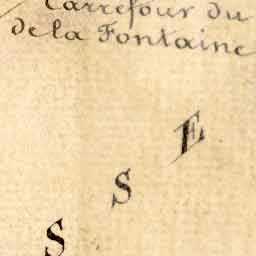 Carrefour du
de la Fontaine
S S E